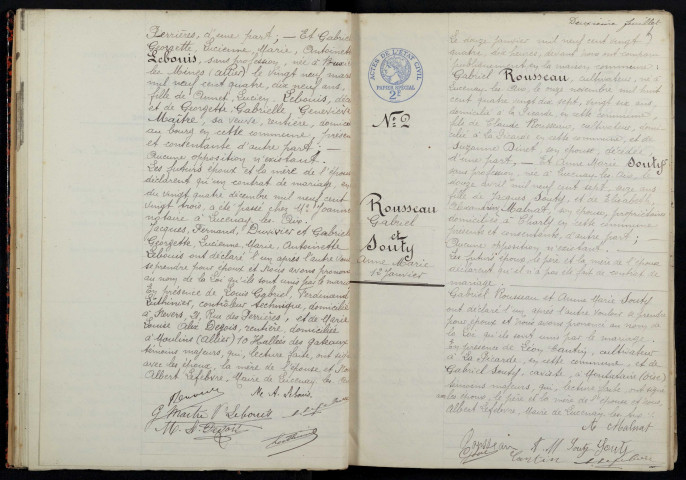 Ferrières, d'une part; — Et Gabriel
Georgette, Lucienne, Marie, Antoinette
Lebouis, sans profession, née à
les Mines (Allier) le vingt neuf mars
mil neuf cent quatre, dix neuf ans,
fille de Lucien Lebouis,
et de Georgette, Gabrielle, Geneviève
Maître, sa veuve, rentière, domiciliée
au bourg en cette commune, présente
et consentante d'autre part: —
Aucune opposition n'existant. —
Les futurs époux et la mère de l'épouse
déclarent qu'un contrat de mariage, en
du vingt quatre décembre mil neuf cent
vingt trois, a été passé chez Me
notaire à Lucenay les Aix.
Jacques, Fernand, Duvivier et Gabrielle
Georgette, Lucienne, Marie, Antoinette
Lebouis ont déclaré l'un après l'autre
se prendre pour époux et Nous avons prononcé
au nom de la Loi qu'ils sont unis par le mariage
En présence de Louis Gabriel, Ferdinand
contrôleur technique, domicilié
à Nevers, 21, Rue des Perrières; et de Marie
Louise rentière, domiciliée
à Moulins (Allier) 10
témoins majeurs, qui, lecture faite, ont signé
avec les époux, la mère de l'épouse et Nous
Albert Lefebvre, Maire de Lucenay les Aix
M. A. Lebouis
G Maître Lebouis
ACTES DE L'ÉTAT CIVIL
PAPIER SPÉCIAL
2F
No 2
Rousseau
Gabriel
et
Souty
Anne Marie
12 Janvier
Deuxième feuillet
Le douze janvier mil neuf cent vingt
quatre, dix heures, devant nous ont comparu
publiquement en la maison commune:
Gabriel Rousseau, cultivateur, né à
Lucenay les Aix, le onze novembre mil huit
cent quatre vingt dix sept, vingt six ans,
domicilié à la Picarde en cette commune,
fils de Claude Rousseau, cultivateur, domicilié
à la Picarde en cette commune, et de
Suzanne son épouse, décédée
d'une part; — Et Anne Marie Souty
sans profession, née à Lucenay les Aix, le
douze avril mil neuf cent sept, seize ans
fille de Jacques Souty, et de Elisabeth
Malnat, son épouse, propriétaires
domiciliés à en cette commune
présents et consentants, d'autre part; —
Aucune opposition n'existant. —
Les futurs époux, le père et la mère de l'épouse
déclarent qu'il n'a pas été fait de contrat de
mariage. —
Gabriel Rousseau et Anne Marie Souty
ont déclaré l'un après l'autre vouloir se prendre
pour époux et nous avons prononcé au nom de
la Loi qu'ils sont unis par le mariage. —
En présence de Léon cultivateur
à la Picarde, en cette commune, et de
Gabriel Souty, à Montataire (Oise)
témoins majeurs, qui, lecture faite, ont signé
avec les époux, le père et la mère de l'épouse et nous,
Albert Lefebvre, Maire de Lucenay les Aix
Malnat
Rousseau A M Souty Souty